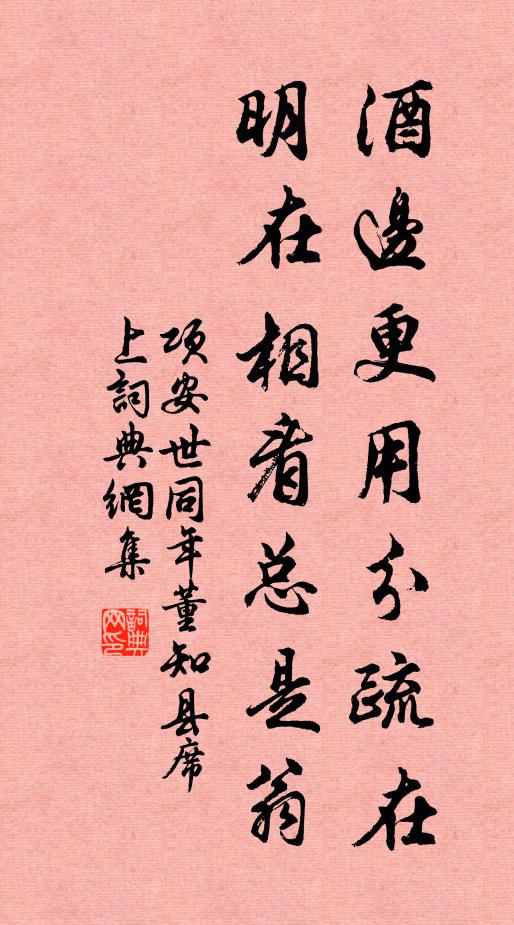 酒邊更用分疏在
明在相看总是翁
项安世同年董知县席
上詞典網集
詞典网印